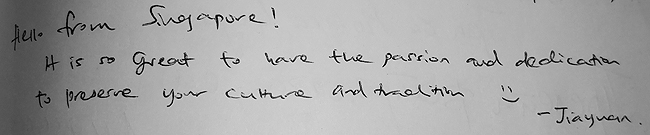 Hello from Singapore!
It is so great to have the passion and dedication
to preserve your culture and tradition :)
- Jiayuan.